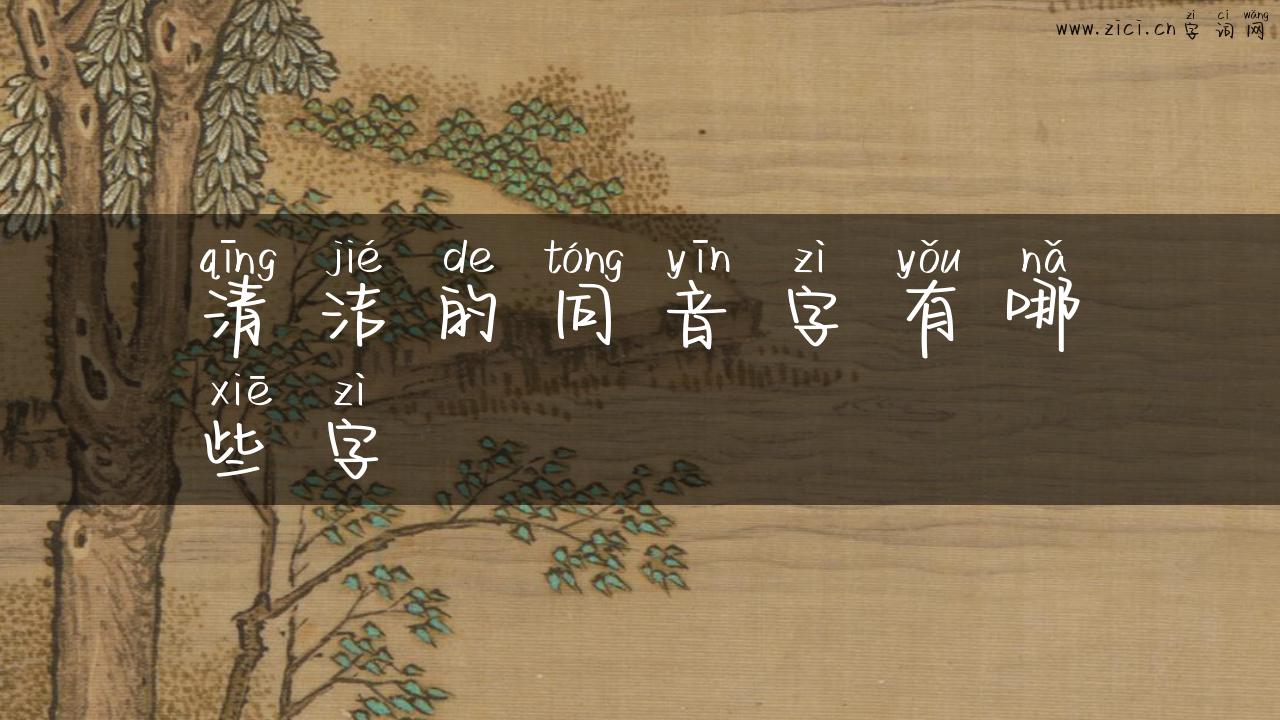 zì cí wǎng
www.zici.cn 字词网
qīng jié de tóng yīn zì yǒu nǎ
清洁的同音字有哪
xiē zì
些字